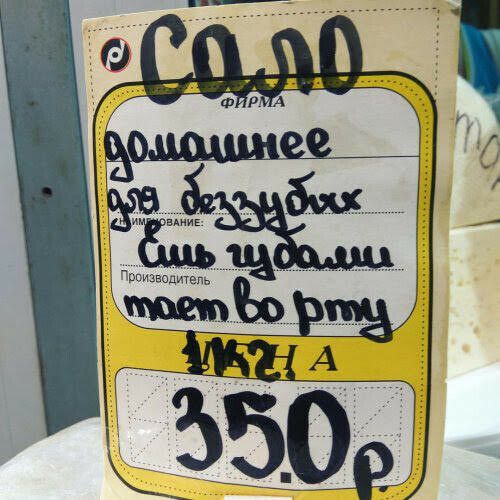 Сало
ФИРМА
домашнее
для беззубых
НАИМЕНОВАНИЕ:
Ешь губами
Производитель
тает во рту
ЦЕНА
1 кг.
350 р.